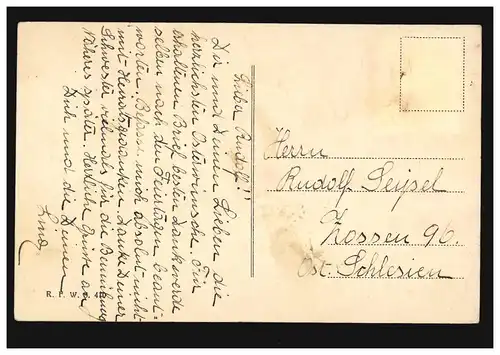 Lieber Rudolf!!
Dir und Deinen Lieben die
herzlichsten Osterwünsche. Für
erhaltenen Brief besten Dank werde
selben nach den Feiertagen beant-
worten. mich absolut nicht
mit Heiratsgedanken Danke Deiner
Schwester vielmals für die Bemühung
Näheres später. Herzliche an
Dich und die Deinen
R. F. W.
Herrn
Rudolf Seipel
Zossen 96.
Ost. Schlesien